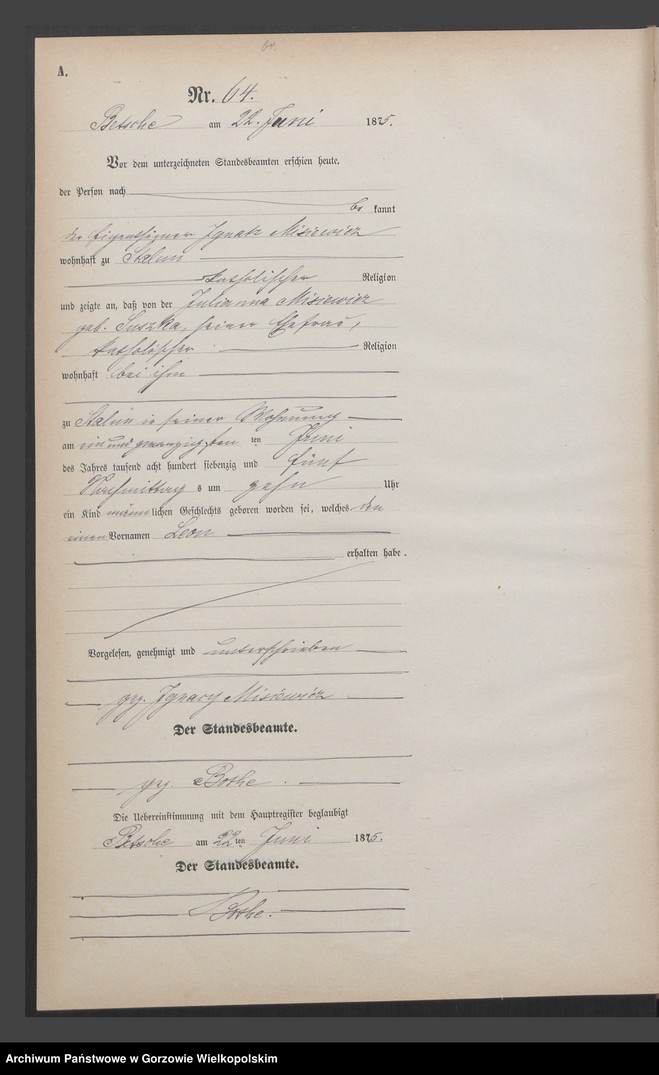 64.
A.
Nr. 64.
Betsche am 22. Juni 1875.
Vor dem unterzeichneten Standesbeamten erschien heute,
der Person nach
be kannt
der Eigenthümer Ignatz Misiewicz
wohnhaft zu Stalun
katholischer Religion
und zeigte an, daß von der Julianna Misiewicz
geb. Suszka, seiner Ehefrau,
katholischer Religion
wohnhaft bei ihm
zu Stalun in seiner Wohnung
am ein und zwanzigsten ten Juni
des Jahres tausend acht hundert siebenzig und fünf
Nachmittag s um zehn Uhr
ein Kind männlichen Geschlechts geboren worden sei, welches den
einen Vornamen Leon
erhalten habe.
Vorgelesen, genehmigt und unterschrieben
gez. Ignacy Misiewicz
Der Standesbeamte.
gez. Bothe.
Die Uebereinstimmung mit dem Hauptregister beglaubigt
Betsche am 22 ten Juni 1875.
Der Standesbeamte.
Bothe.
Archiwum Państwowe w Gorzowie Wielkopolskim